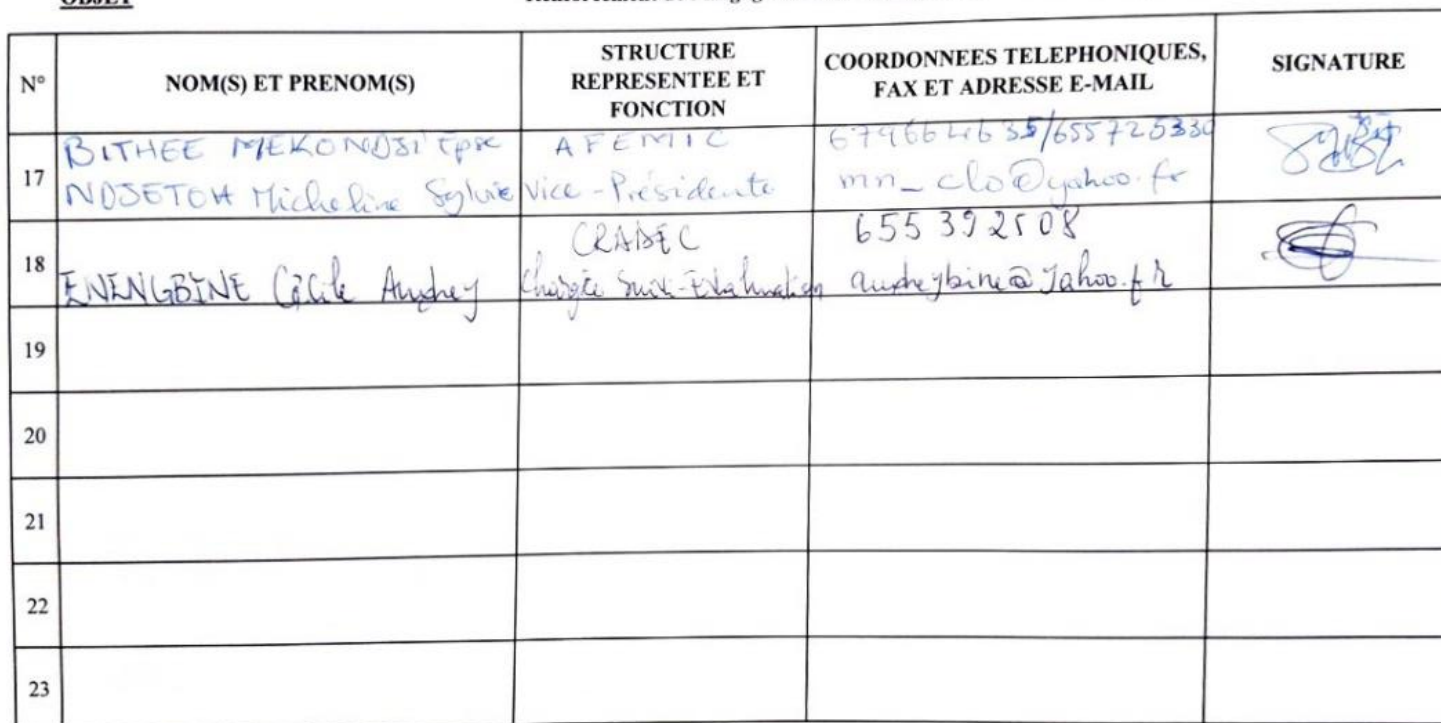 OBJET
N°
NOM(S) ET PRENOM(S)
STRUCTURE
REPRESENTEE ET
FONCTION
COORDONNEES TELEPHONIQUES,
FAX ET ADRESSE E-MAIL
SIGNATURE
17
BITHEE MEKONDJI Epse
NDJETOH Micheline Sylvie
AFEMIC
Vice-Présidente
679664635/655725330
mn_clo@yahoo.fr
18
ENENGBINE Cécile Audrey
CRADEC
Chargée Suivi-Evaluation
655392508
audreybine@yahoo.fr
19
20
21
22
23